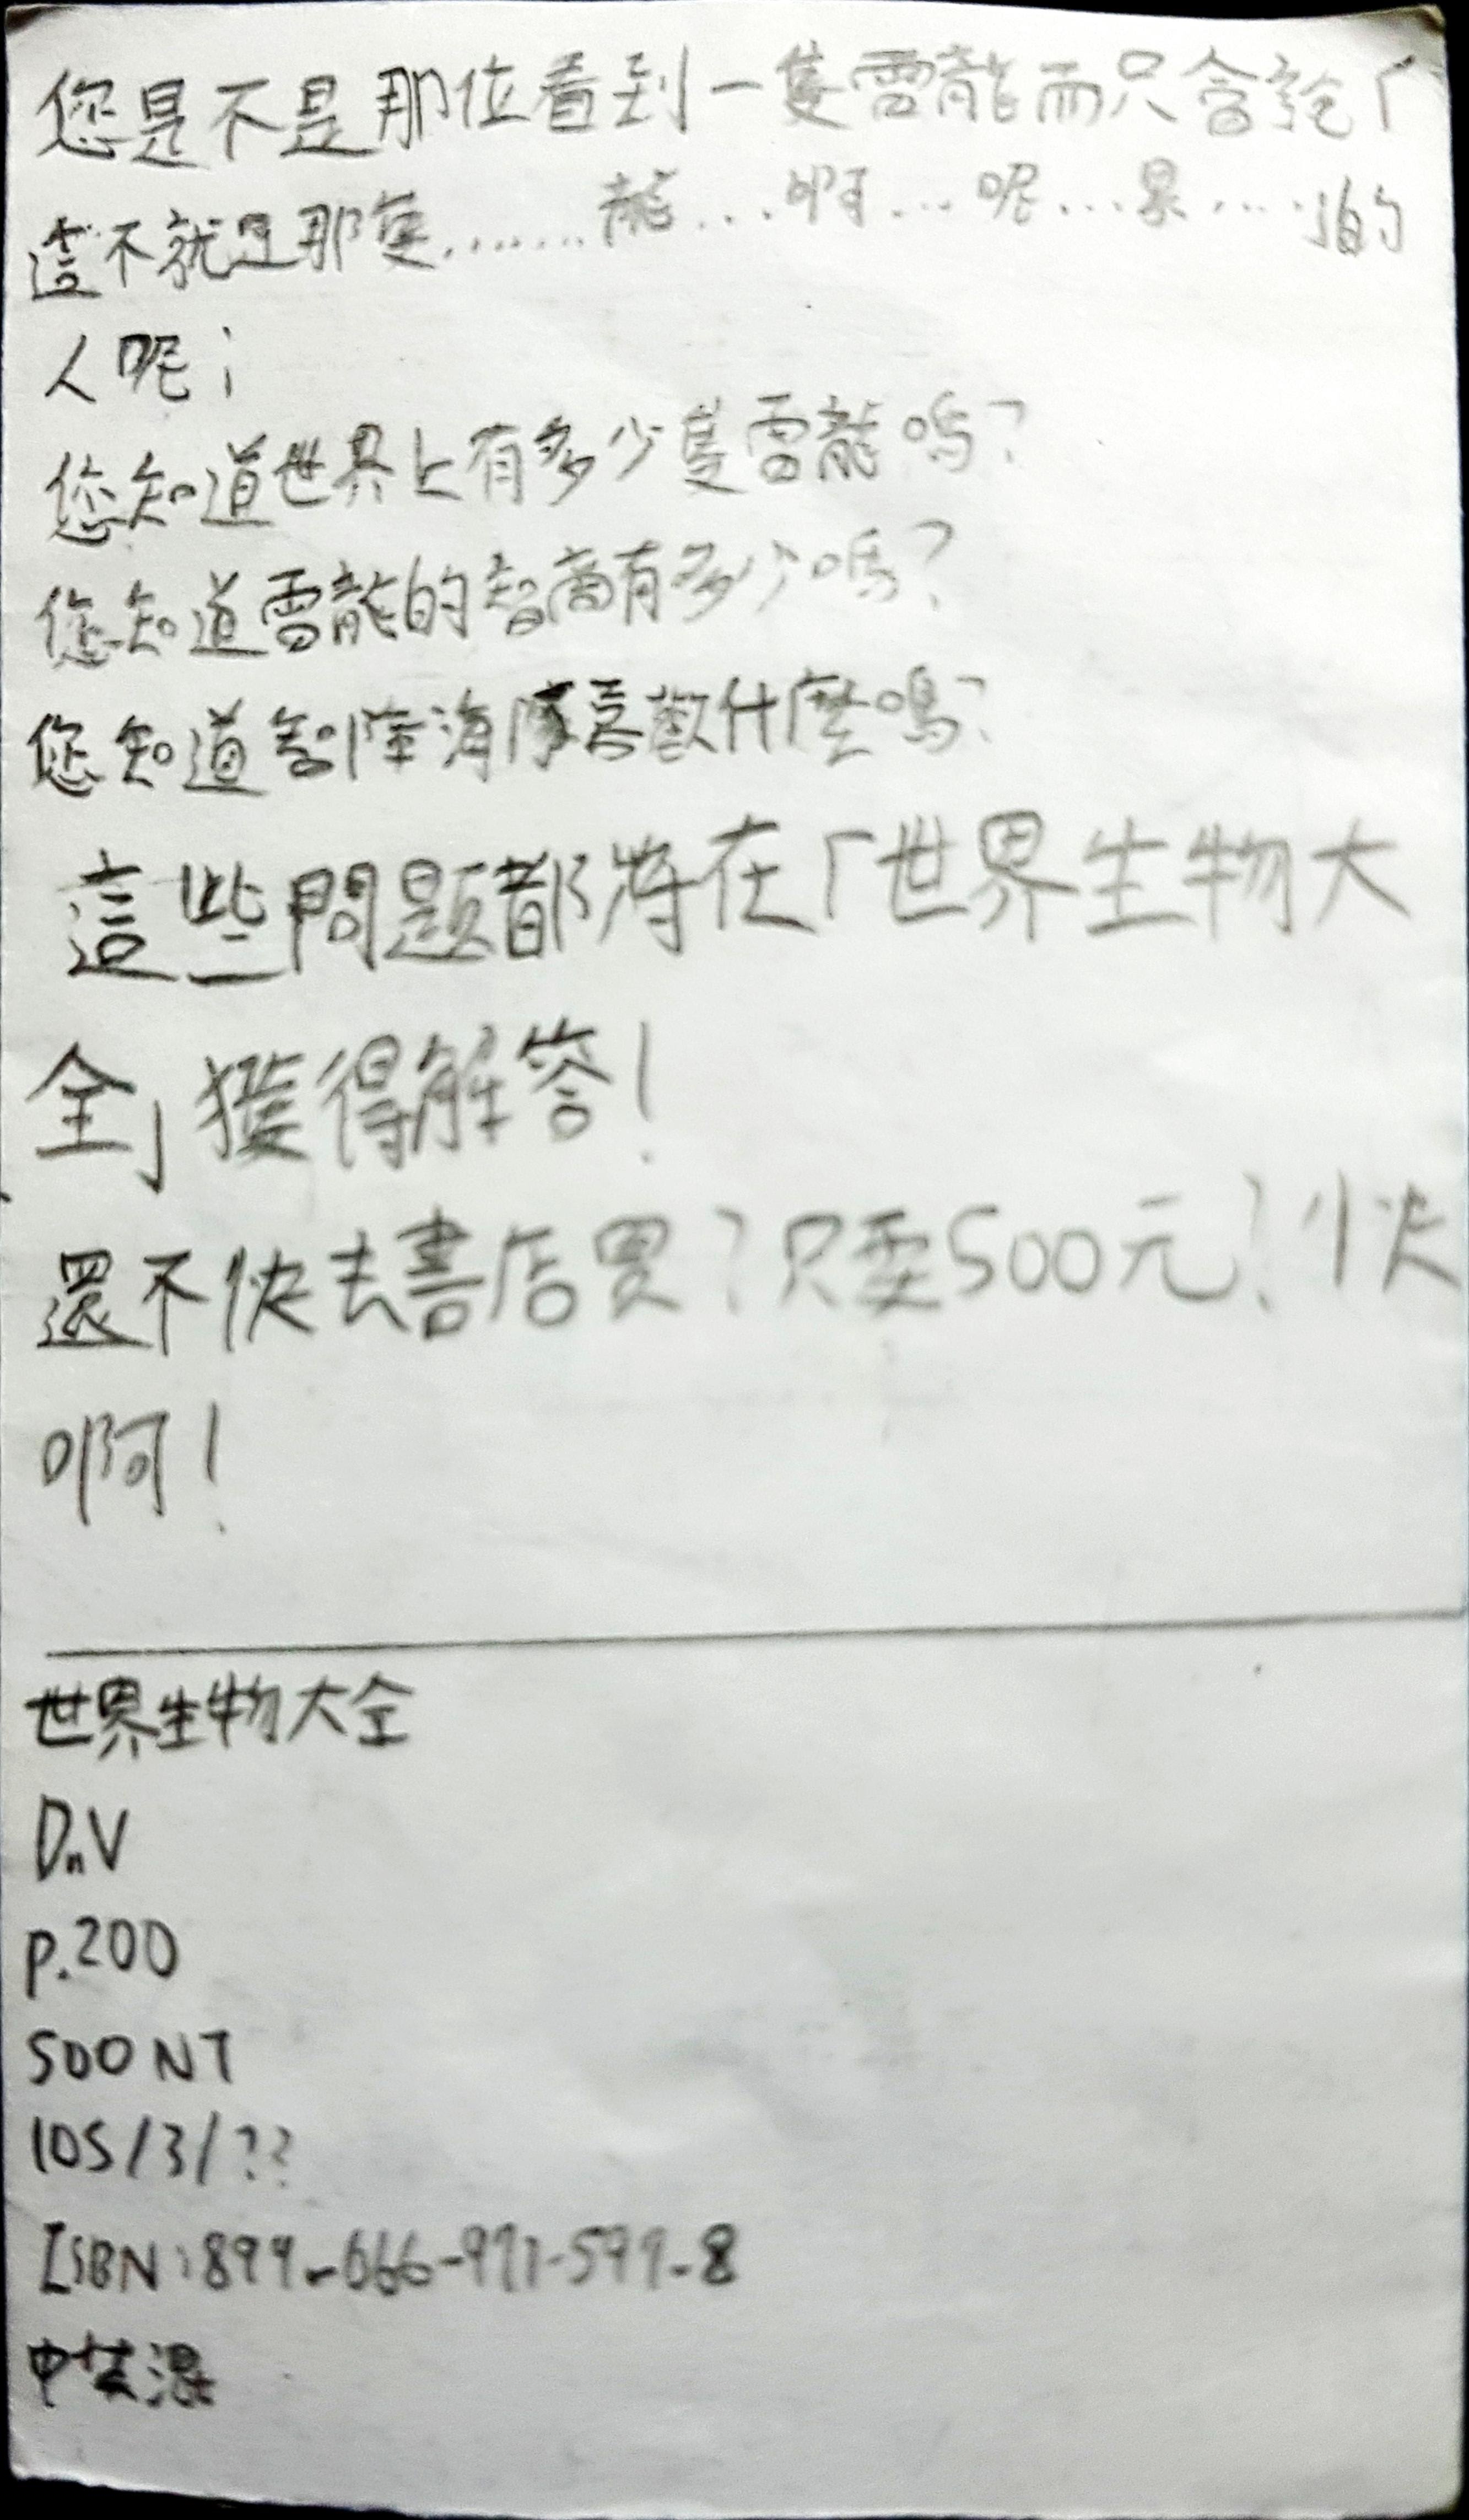 您是不是那位看到一隻雷龍而只會說「
這不就是那隻.......龍...啊...呢...果....」的
人呢¡
您知道世界上有多少隻雷龍嗎?
您知道雷龍的智商有多少嗎?
您知道 海豚喜歡什麼嗎?
這些問題都將在「世界生物大
全」獲得解答!
還不快去書店買?只賣500元?!快
啊!
世界生物大全
DnV
p.200
500 NT
105/3/??
ISBN:899-666-991-599-8
中英混